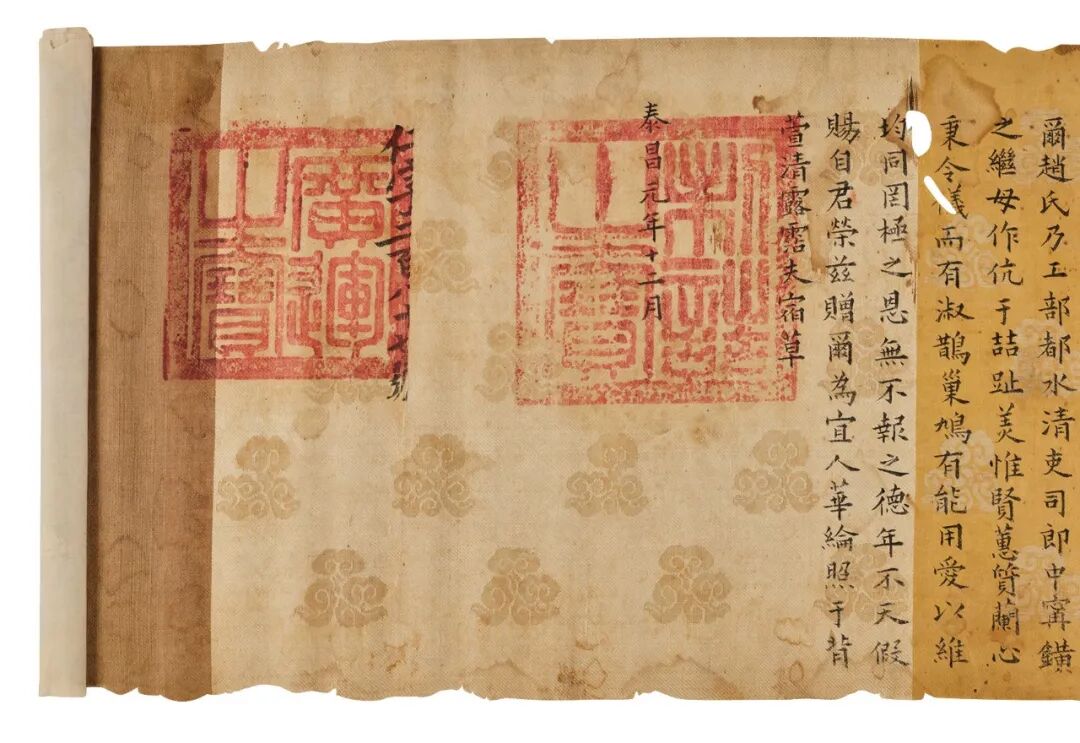 爾趙氏乃工部都水清吏司郎中甯鑛
之繼母作伉于喆趾美惟賢蕙質蘭心
秉令儀而有淑鵲巢鳩有能用愛以維
均同罔極之恩無不報之德年不天假
賜自君榮兹贈爾為宜人華綸照于背
萱清露霑夫宿草
泰昌元年十二月
仁字三百八十七號
廣運之寶